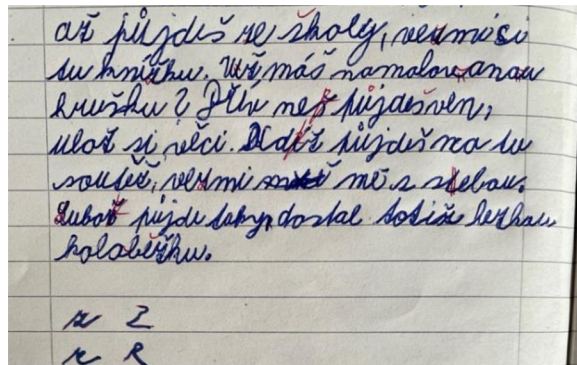 až půjdeš ze školy, vezmi si
tu knížku. Už máš namalovanou
hrušku? Dřív než půjdeš ven,
ulož si věci. Když půjdeš na tu
soutěž, vezmi mě s sebou.
Luboš půjde taky, dostal totiž hezkou
koloběžku.
z Z
r R